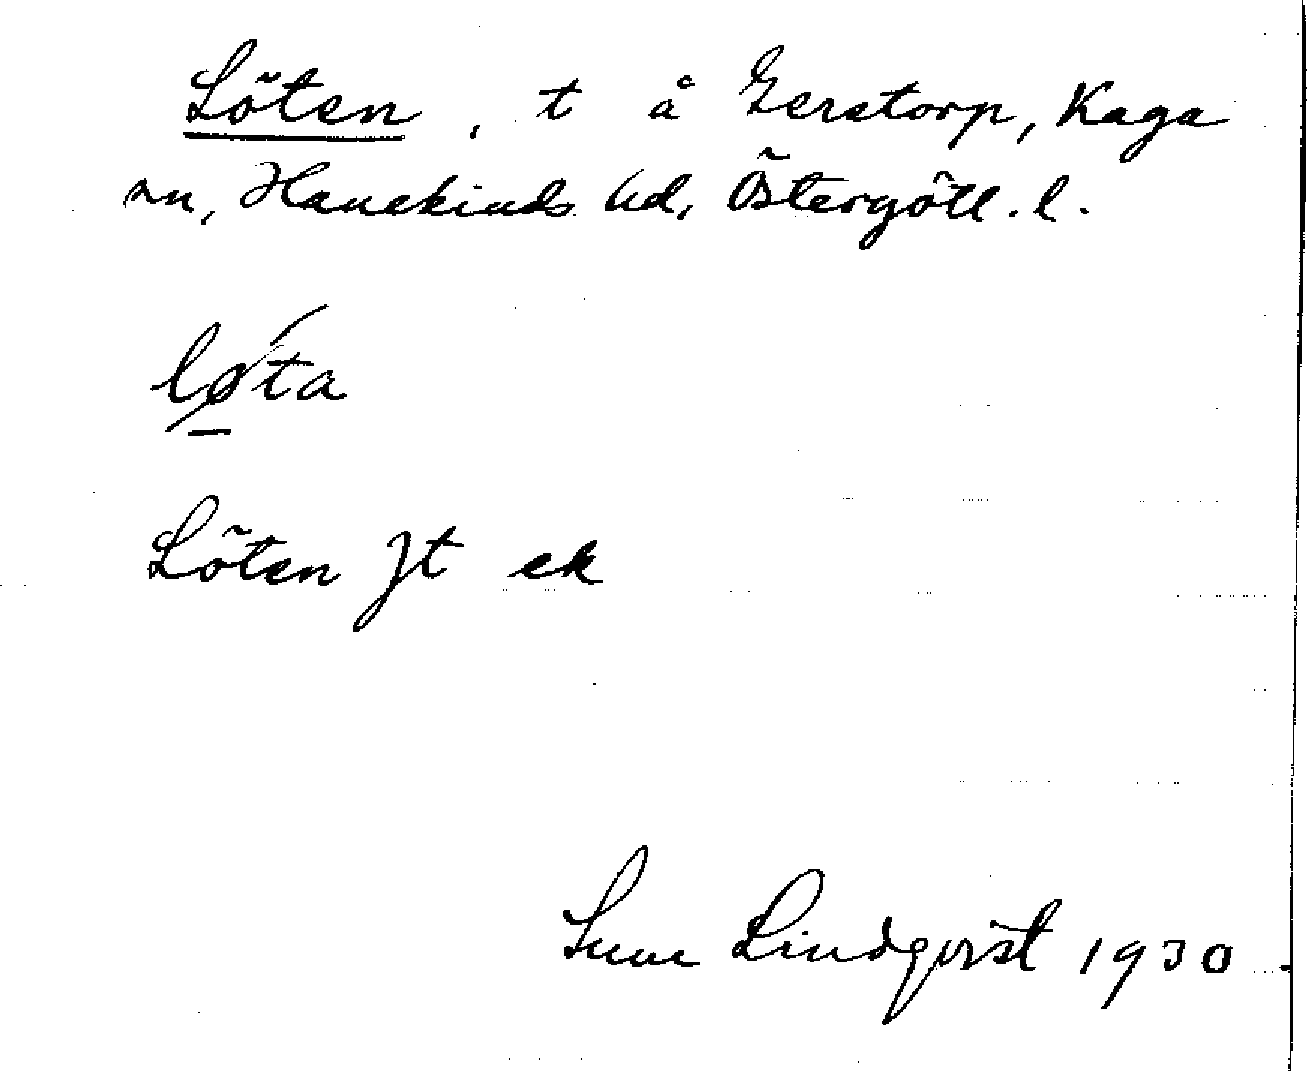 Löten, t å Gerstorp, Kaga
sn, Hanekinds hd, Östergötl. l.
løta
Löten Jt ek
Sune Lindqvist 1930